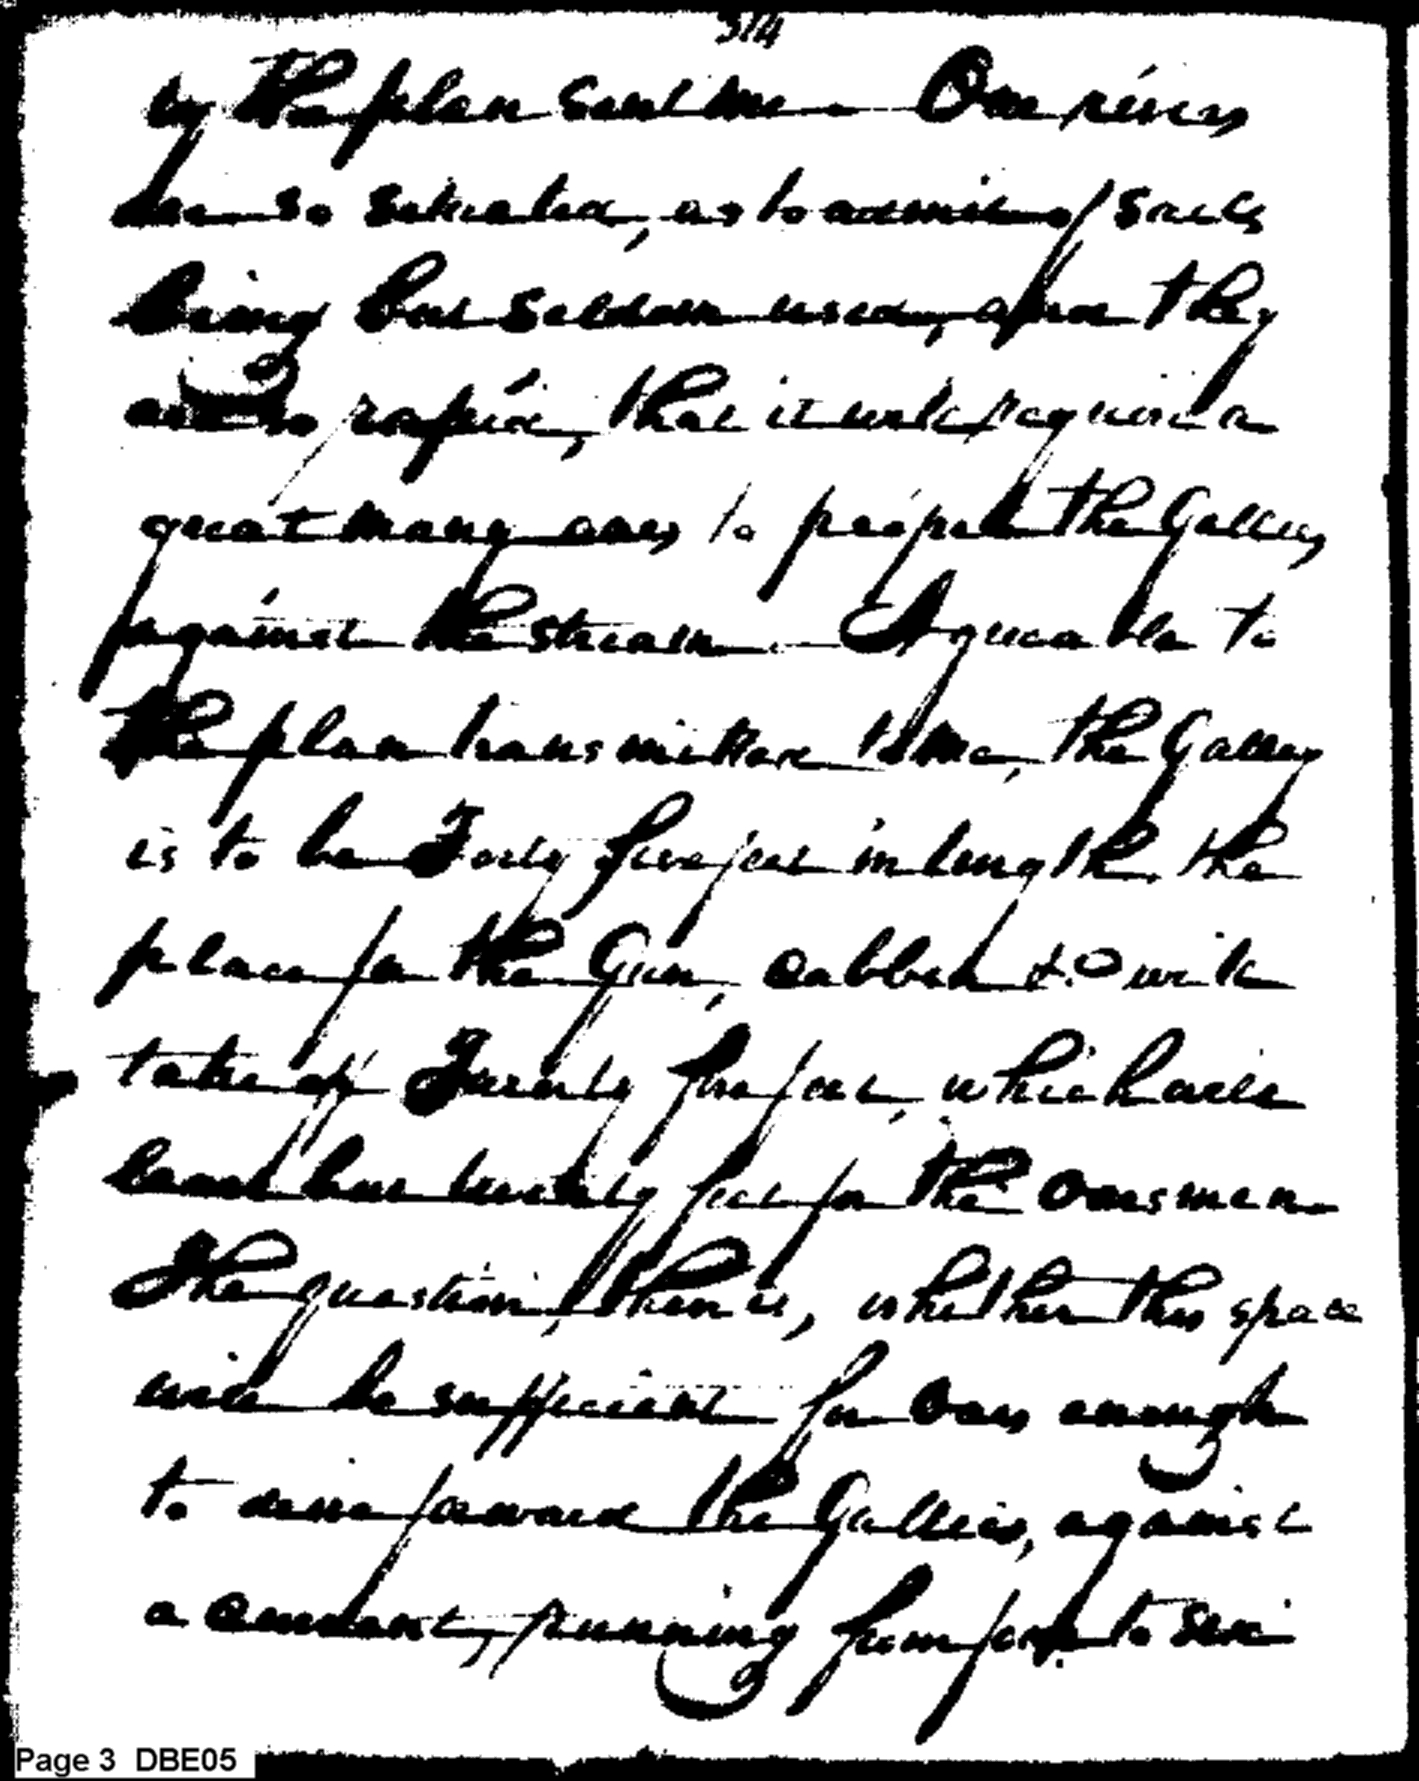 314
by the plan sent me. Our rivers
are so situated, as to admit of sails
being but seldom used, and they
are so rapid, that it will require a
great many oars to propell the Gallies
against the stream. Agreeable to
the plan transmitted to me, the Galley
is to be Forty five feet in length, the
place for the Gun, cabben &c will
take off Twenty five feet, which will
leave but twenty feet for the Oarsmen.
The question, then is, whether this space
will be sufficient for Oars enough
to drive forward the Gallies, against
a current, running from four to six
Page 3 DBE05